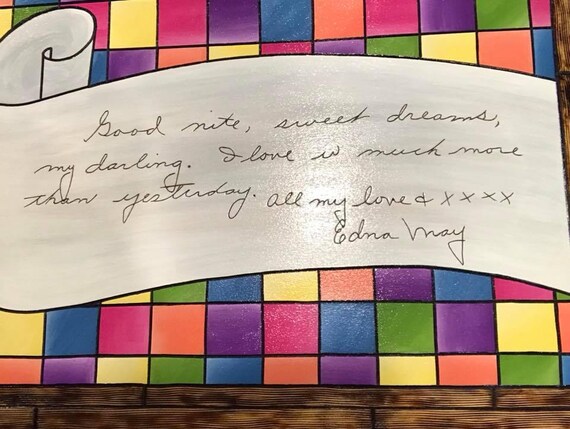 Good nite, sweet dreams,
my darling. I love u much more
than yesterday. All my love & xxxx
Edna May